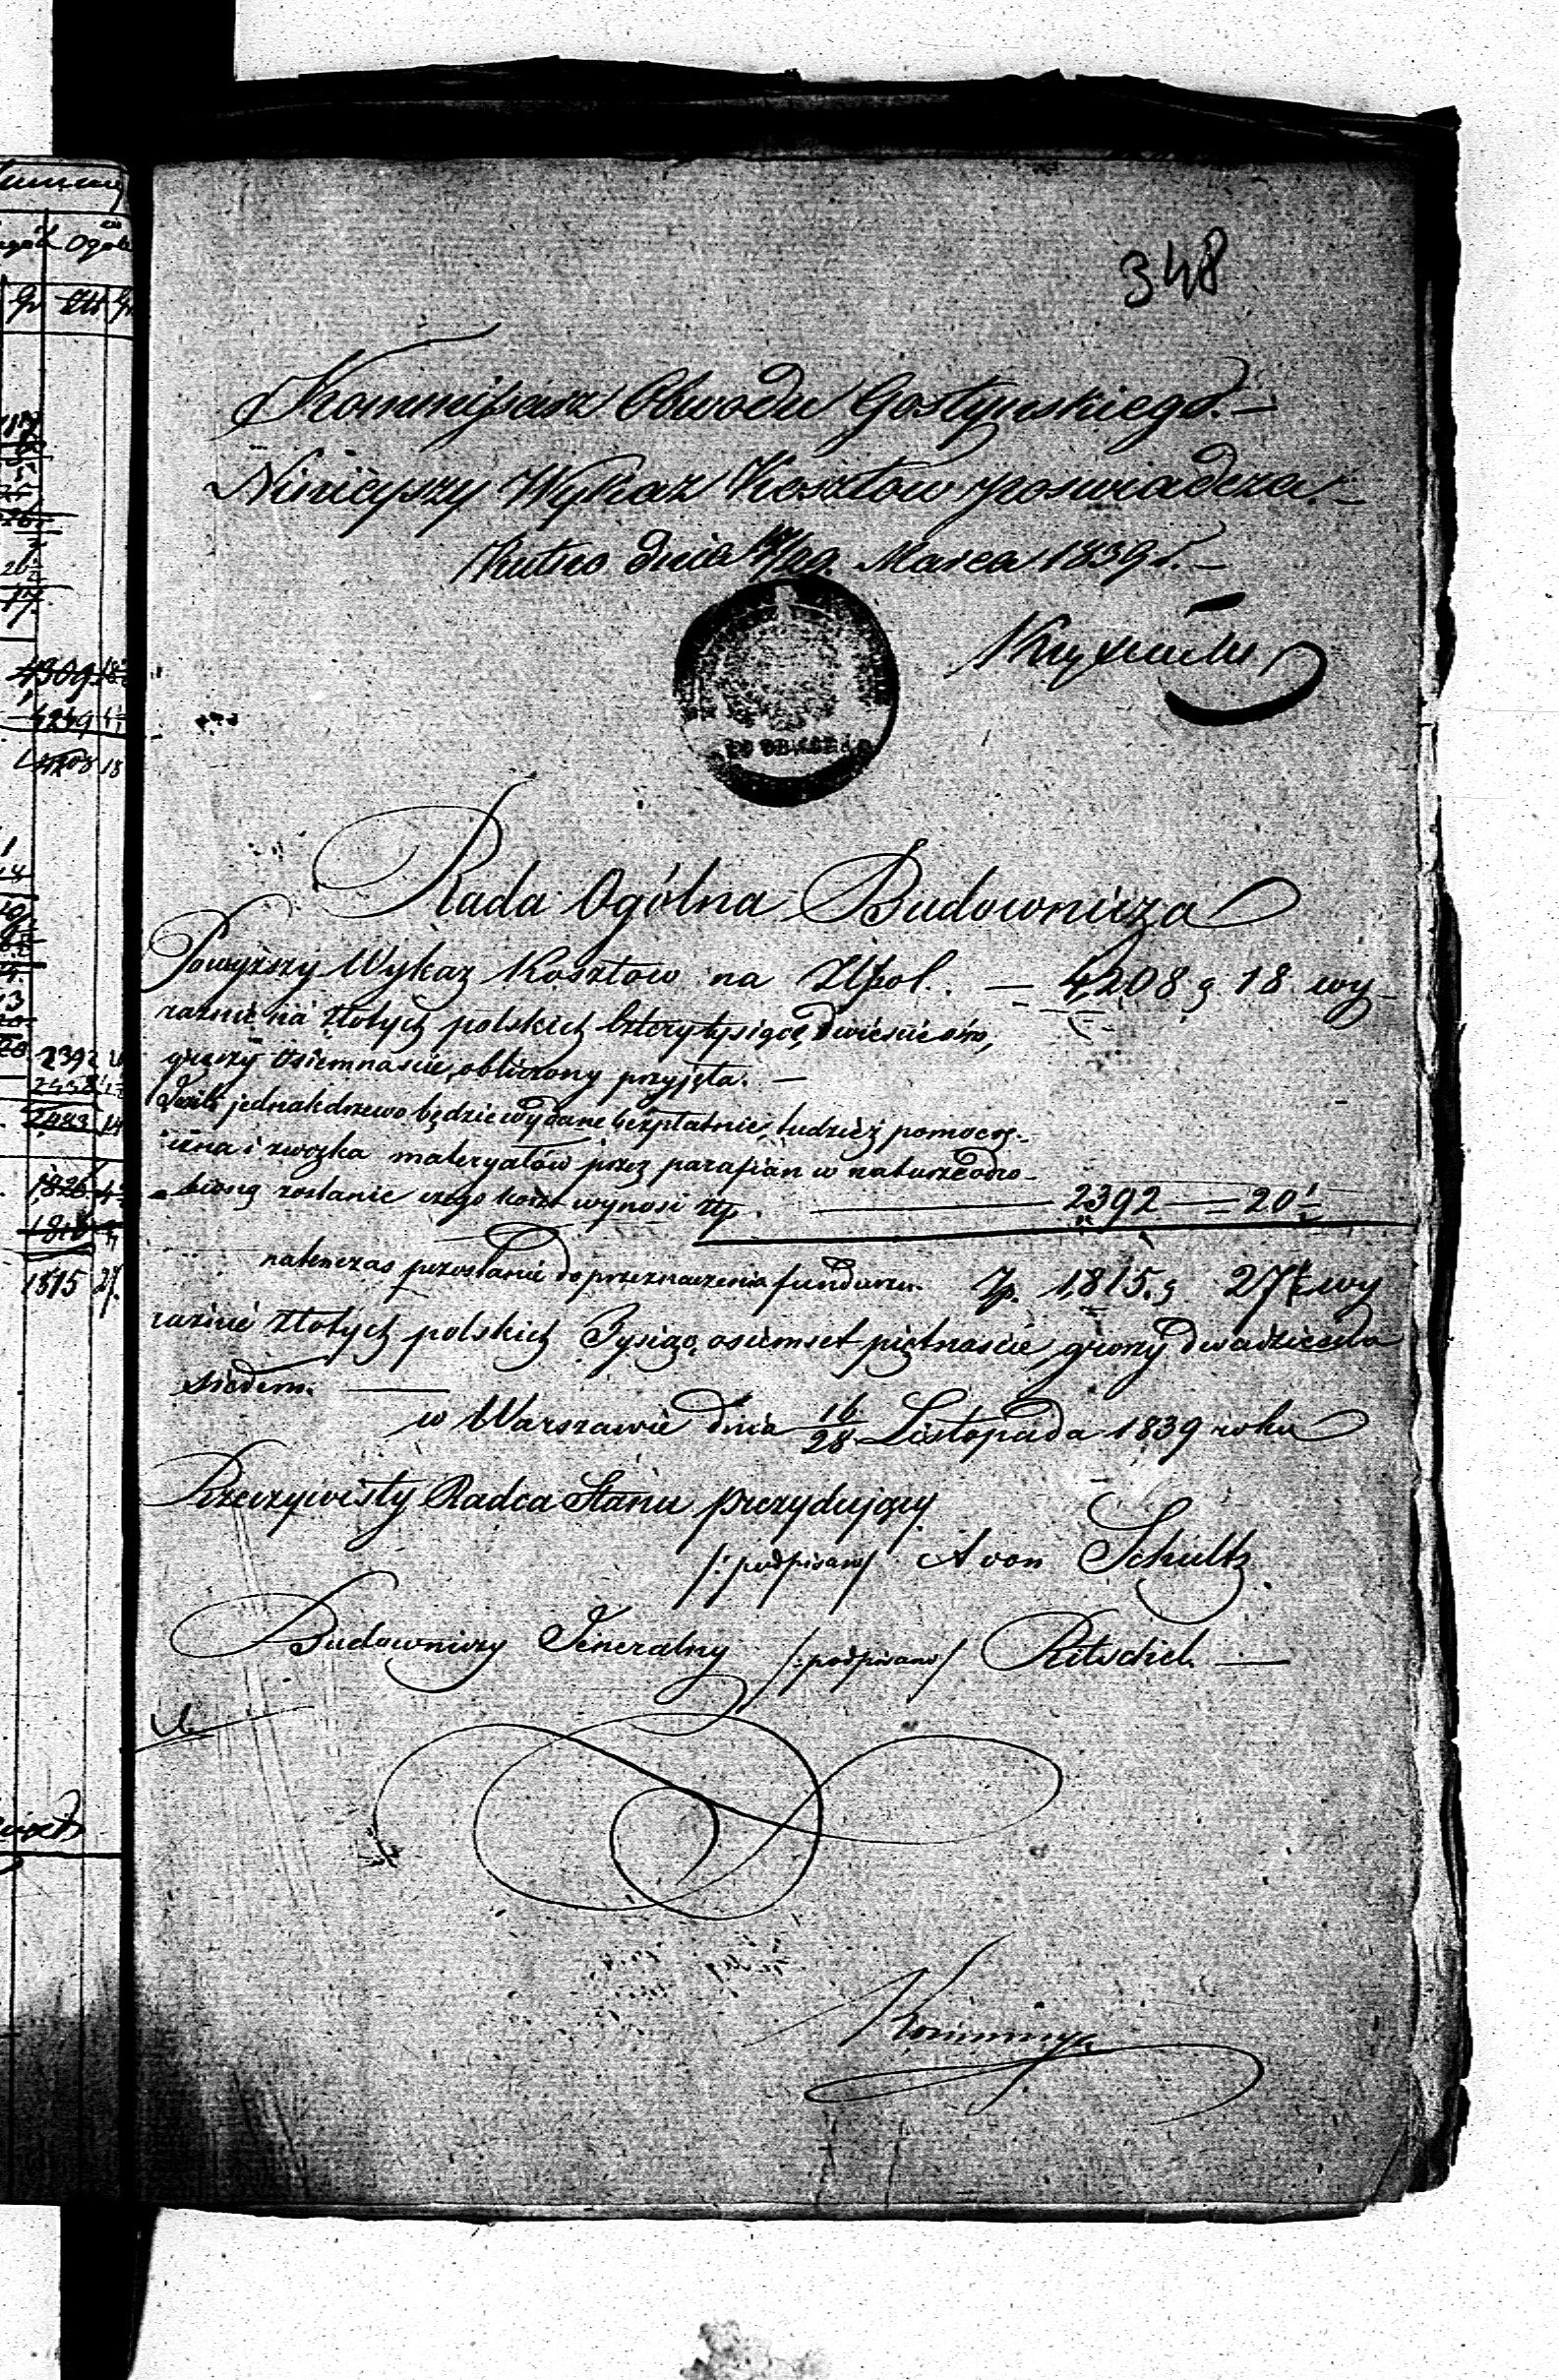 348
Kommissarz Obwodu Gostyńskiego. —
Ninieyszy Wykaz Kosztow poswiadcza. —
Kutno dnia 17/29 Marca 1839 r. —
Rada Ogólna Budownicza
Powyższy Wykaz Kosztow na Złpol. — 4208 g 18 wy-
raznie na złotych polskich Cztery tysiące, dwieście ośm,
groszy osiemnaście, obliczony przyjęła. —
Jeżeli jednak drzewo będzie wydane bezpłatnie, tudzież pomoc rę-
czna i zwózka materyałów przez parafian w naturze odro-
bioną zostanie czego koszt wynosi złp. — 2392 — 20 1/2
natenczas pozostanie do przeznaczenia fundusz. Zp. 1815. g 27 1/2 wy
raźnie złotych polskich Tysiąc osiemset piętnaście, groszy dwadzieścia
siedem. —
w Warszawie dnia 16/28 Listopada 1839 roku
Rzeczywisty Radca Stanu prezydujący
/: podpisano/ A von Schultz
Budowniczy Jeneralny /: podpisano/ Ritschel —
Ogół
Gr Złt Gr
4309
4249
4208 18
2392
2483 14
1826
1815 27.